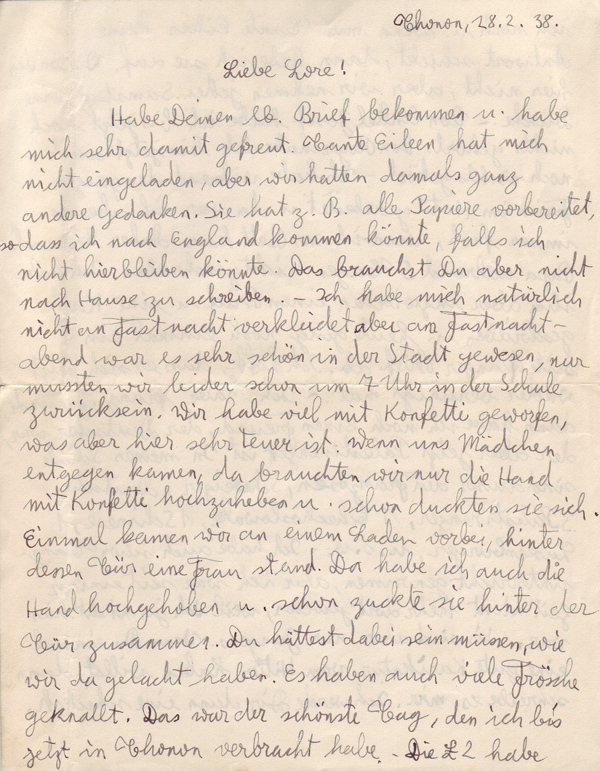 Thonon, 28.2.38.
Liebe Lore!
Habe Deinen lb. Brief bekommen u. habe
mich sehr damit gefreut. Tante Eileen hat mich
nicht eingeladen, aber wir hatten damals ganz
andere Gedanken. Sie hat z. B. alle Papiere vorbereitet,
sodass ich nach England kommen könnte, falls ich
nicht hierbleiben könnte. Das brauchst Du aber nicht
nach Hause zu schreiben. – Ich habe mich natürlich
nicht an Fastnacht verkleidet aber am Fastnacht-
abend war es sehr schön in der Stadt gewesen, nur
mussten wir leider schon um 7 Uhr in der Schule
zurücksein. Wir habe viel mit Konfetti geworfen,
was aber hier sehr teuer ist. Wenn uns Mädchen
entgegen kamen, da brauchten wir nur die Hand
mit Konfetti hochzuheben u. schon duckten sie sich.
Einmal kamen wir an einem Laden vorbei, hinter
dessen Tür eine Frau stand. Da habe ich auch die
Hand hochgehoben u. schon zuckte sie hinter der
Tür zusammen. Du hättest dabei sein müssen, wie
wir da gelacht haben. Es haben auch viele Frösche
geknallt. Das war der schönste Tag, den ich bis
jetzt in Thonon verbracht habe. Die £2 habe